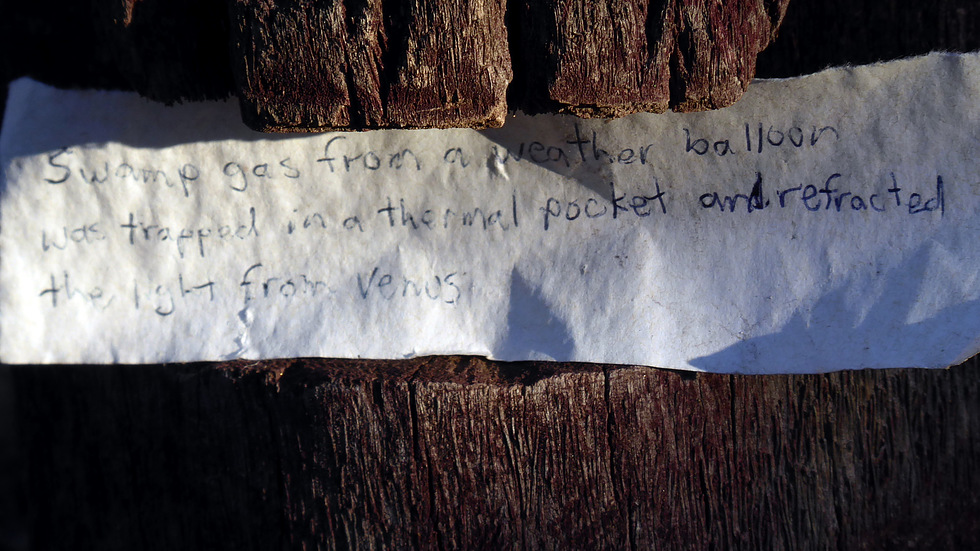 Swamp gas from a weather balloon
was trapped in a thermal pocket and refracted
the light from Venus